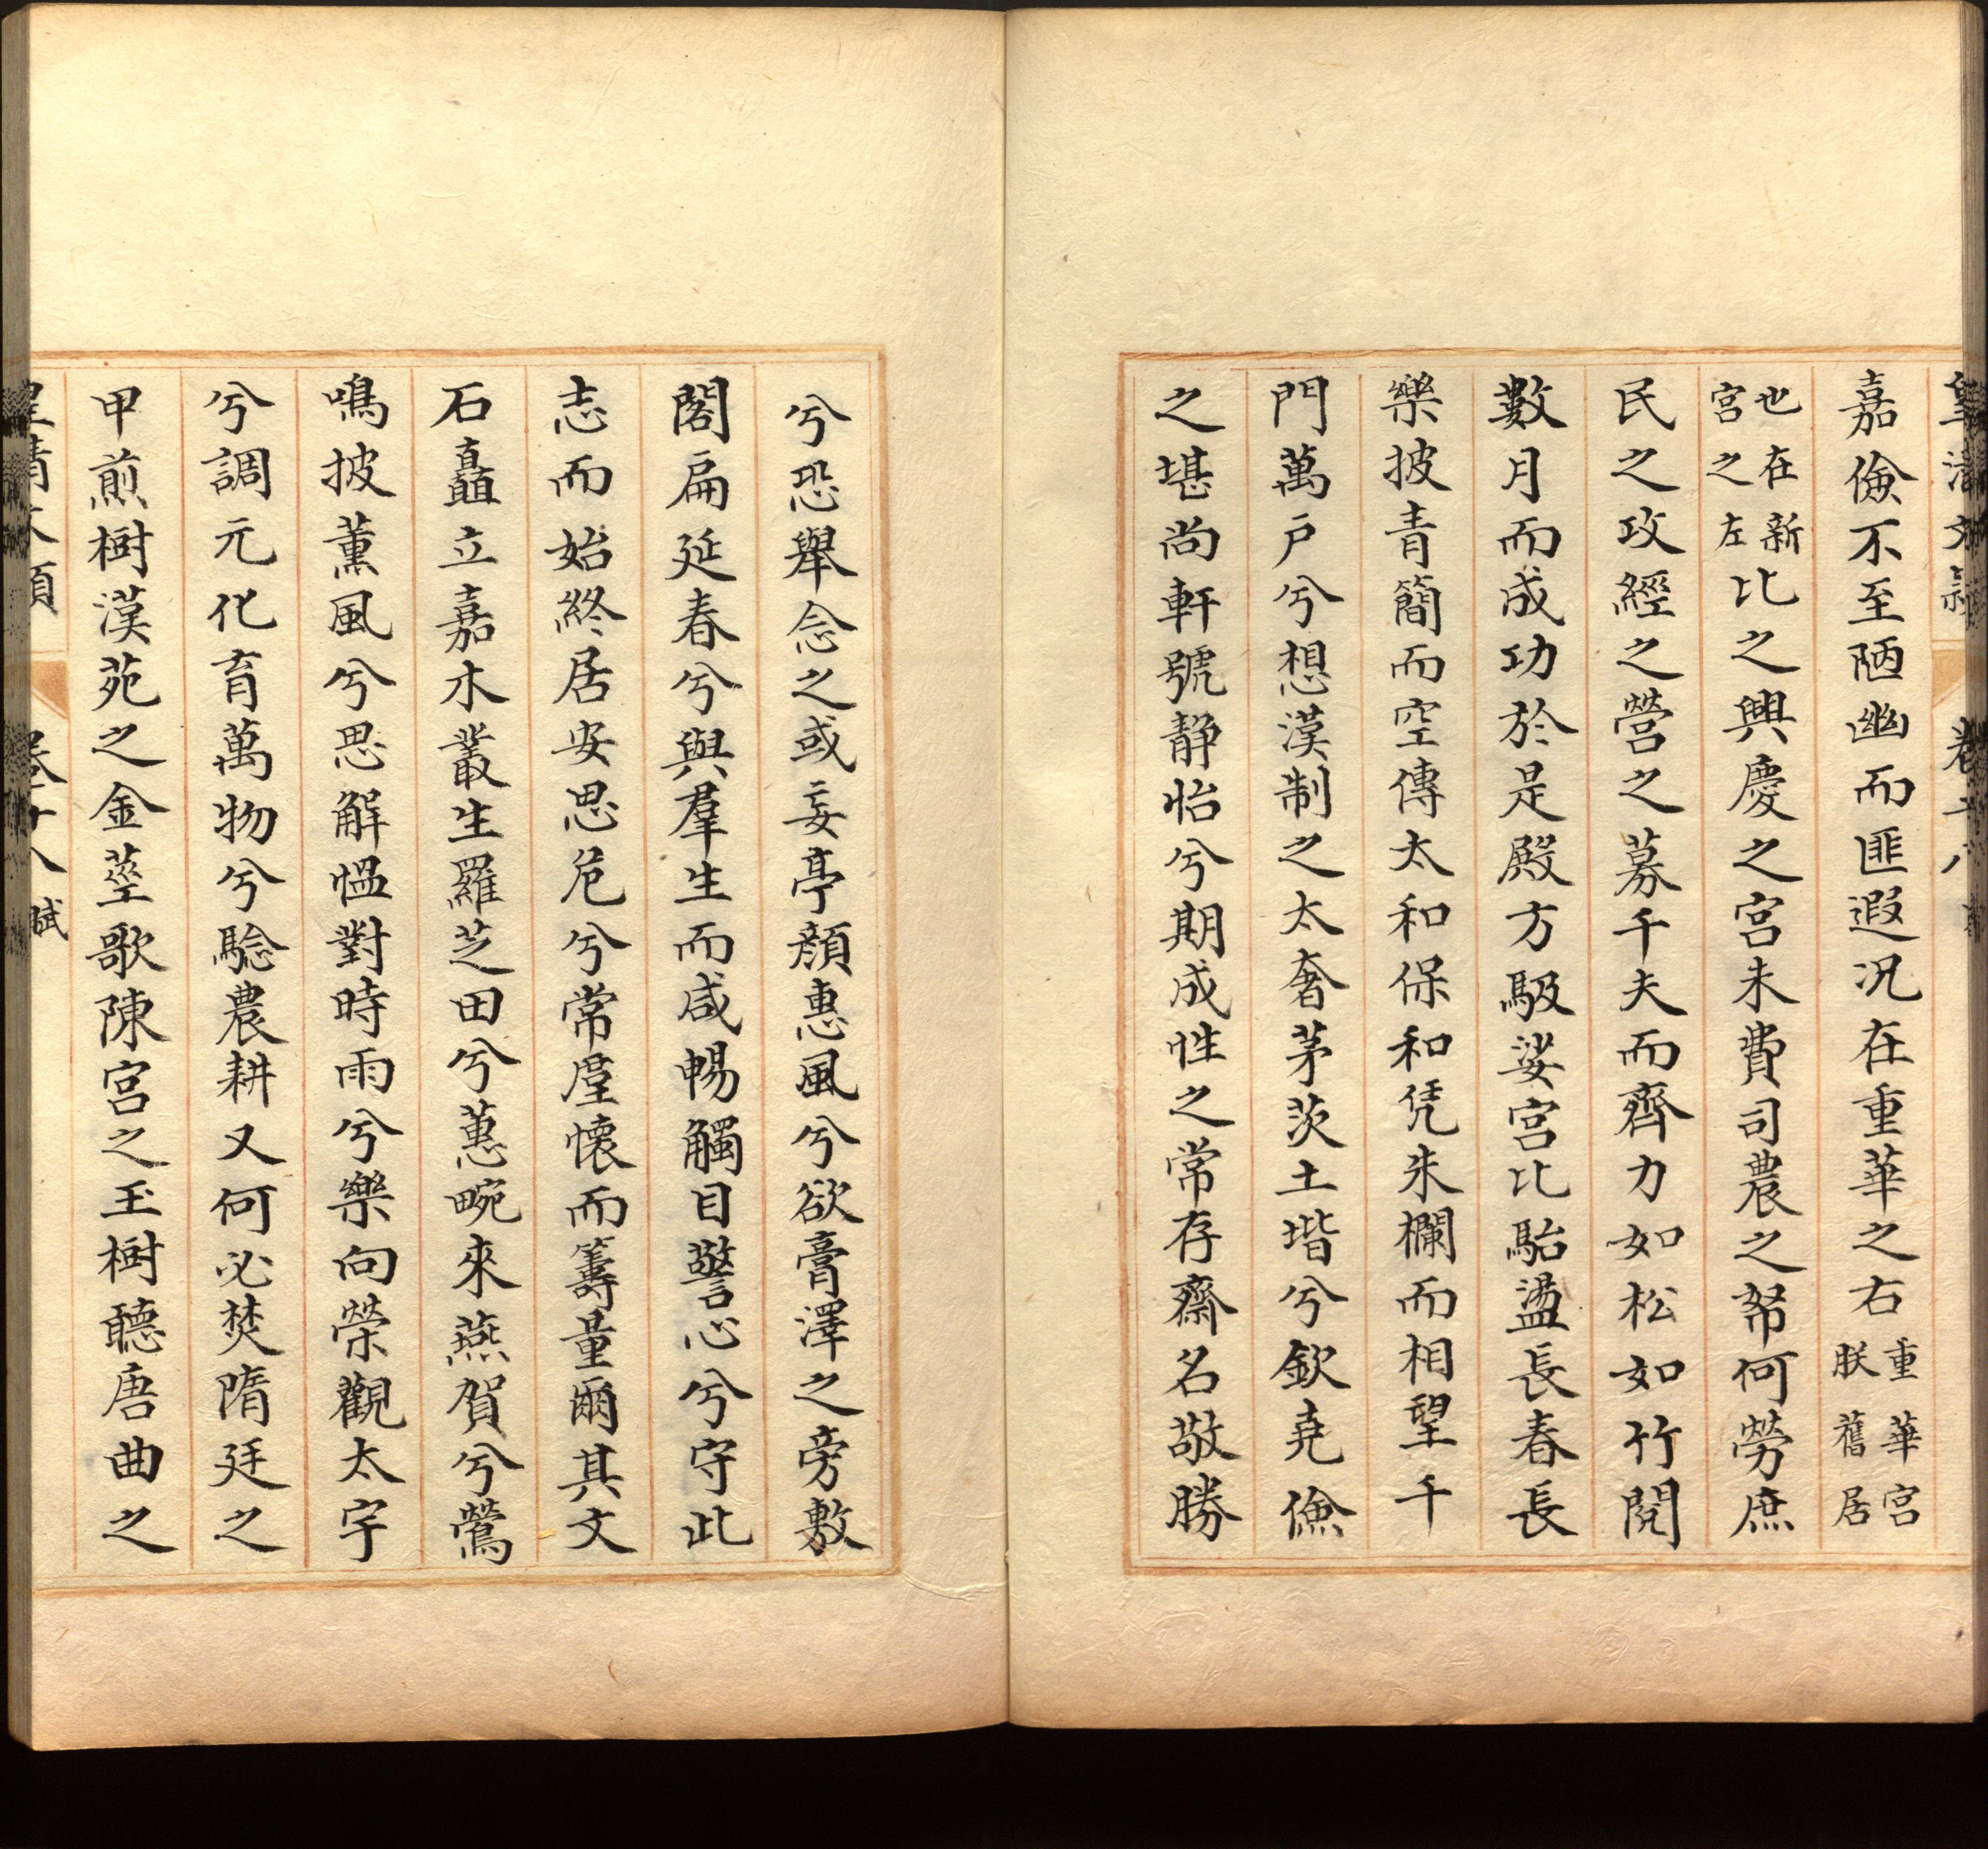 嘉儉不至陋幽而匪遐況在重華之右重華宮朕舊居
也在新宮之左比之興慶之宮未費司農之帑何勞庶
民之攻經之營之募千夫而齊力如松如竹閱
數月而成功於是殿方馺娑宮比駘盪長春長
樂披青簡而空傳太和保和凭朱欄而相望千
門萬戶兮想漢制之太奢茅茨土堦兮欽堯儉
之堪尚軒號靜怡兮期成性之常存齋名敬勝
兮恐舉念之或妄亭顏惠風兮欲膏澤之旁敷
閣扁延春兮與羣生而咸暢觸目警心兮守此
志而始終居安思危兮常廑懷而籌量爾其文
石矗立嘉木叢生羅芝田兮蕙畹來燕賀兮鶯
鳴披薰風兮思解慍對時雨兮樂向榮觀太宇
兮調元化育萬物兮驗農耕又何必焚隋廷之
甲煎樹漢苑之金莖歌陳宮之玉樹聽唐曲之